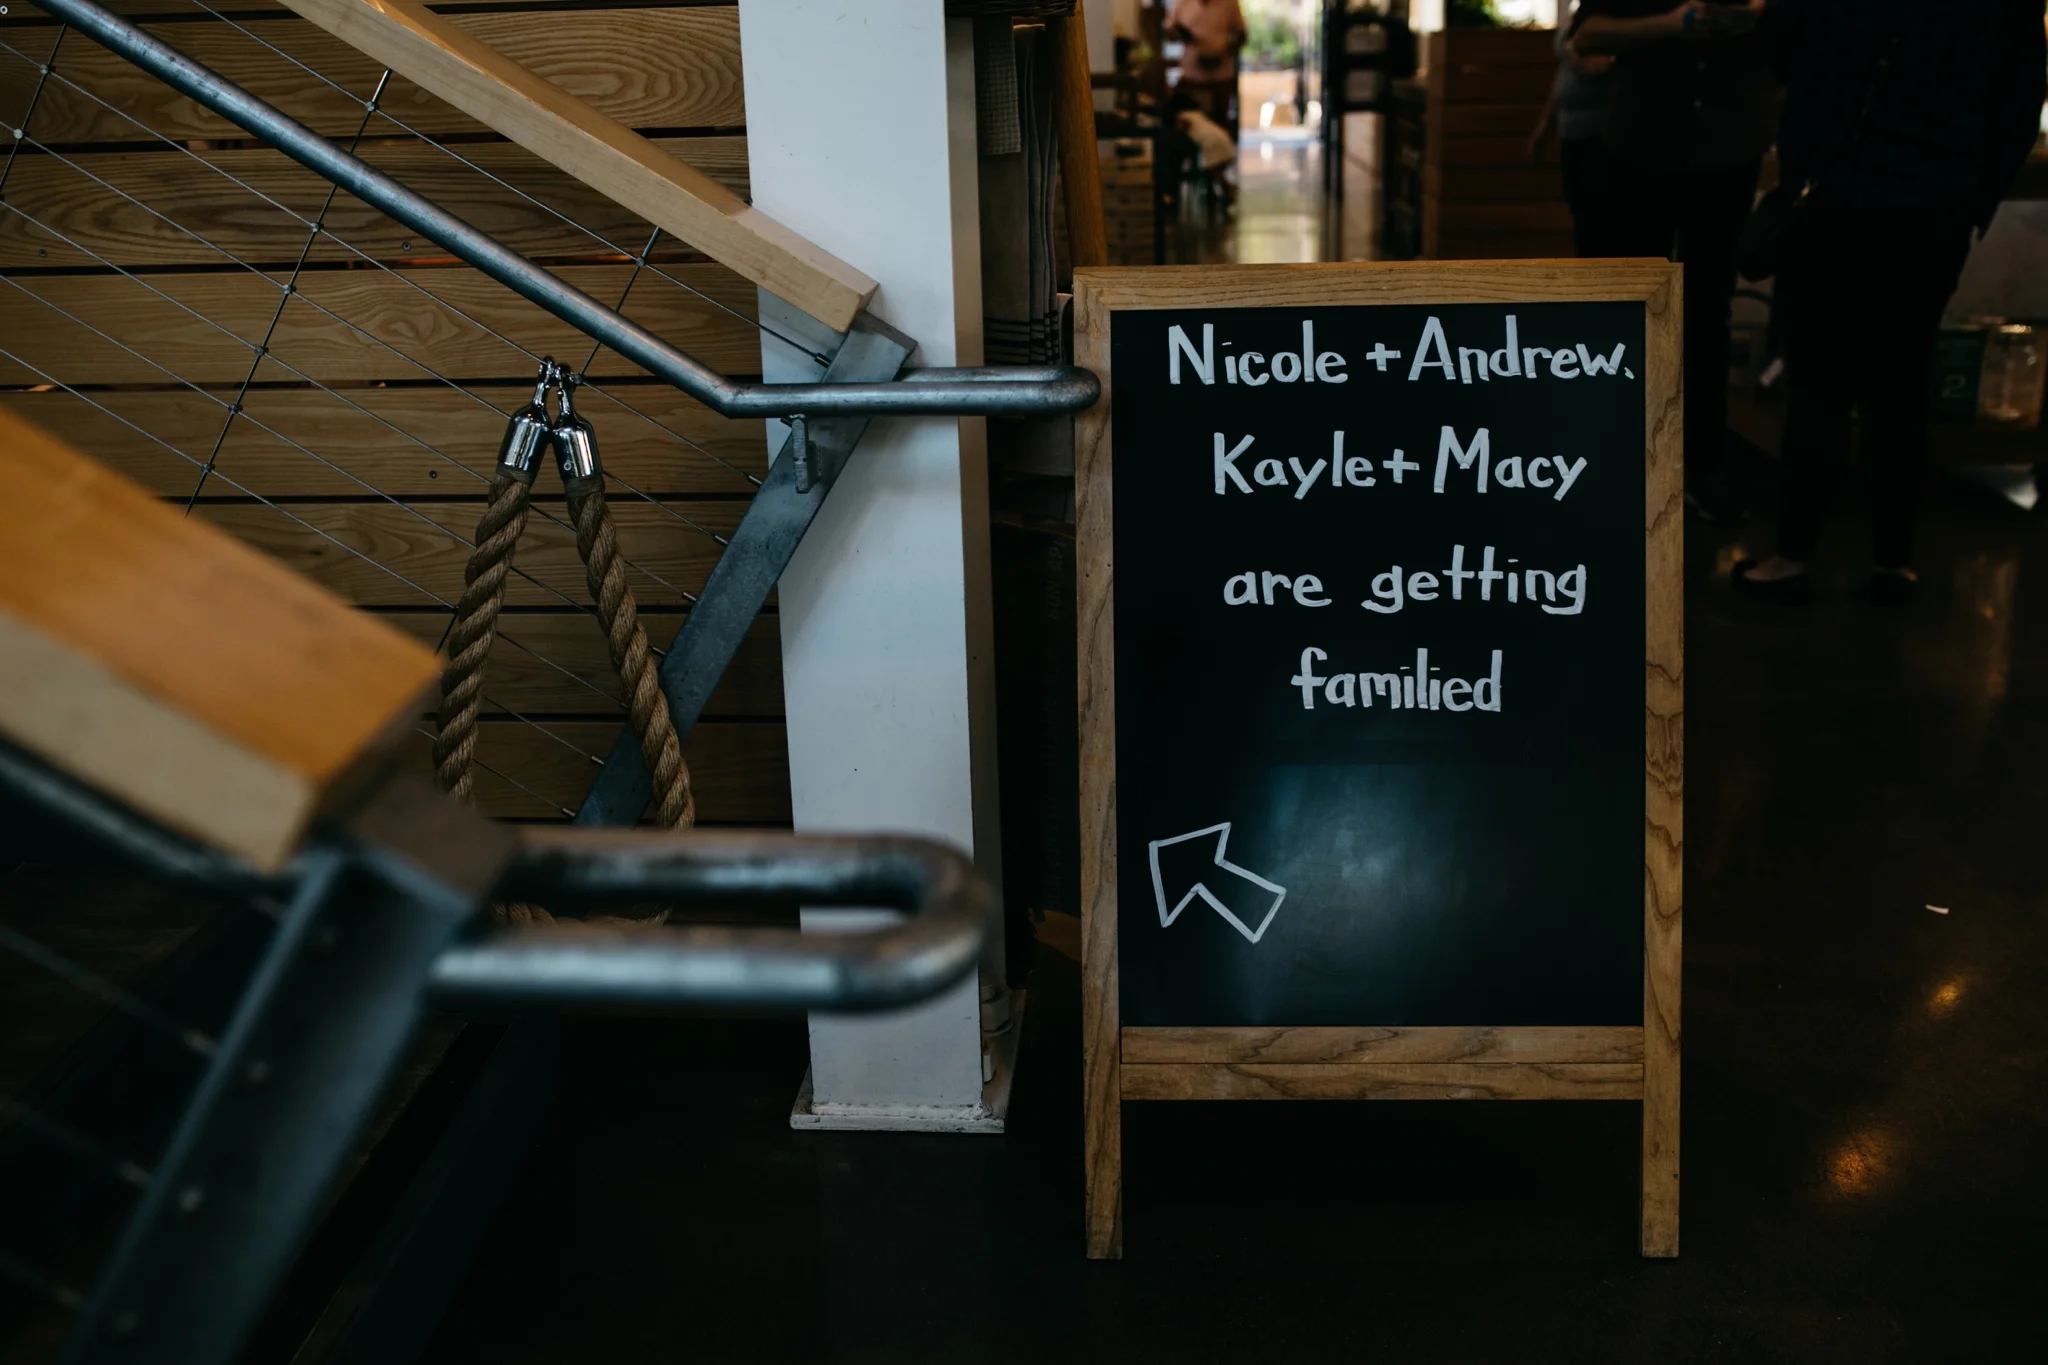 Nicole + Andrew.
Kayle + Macy
are getting
familied
2